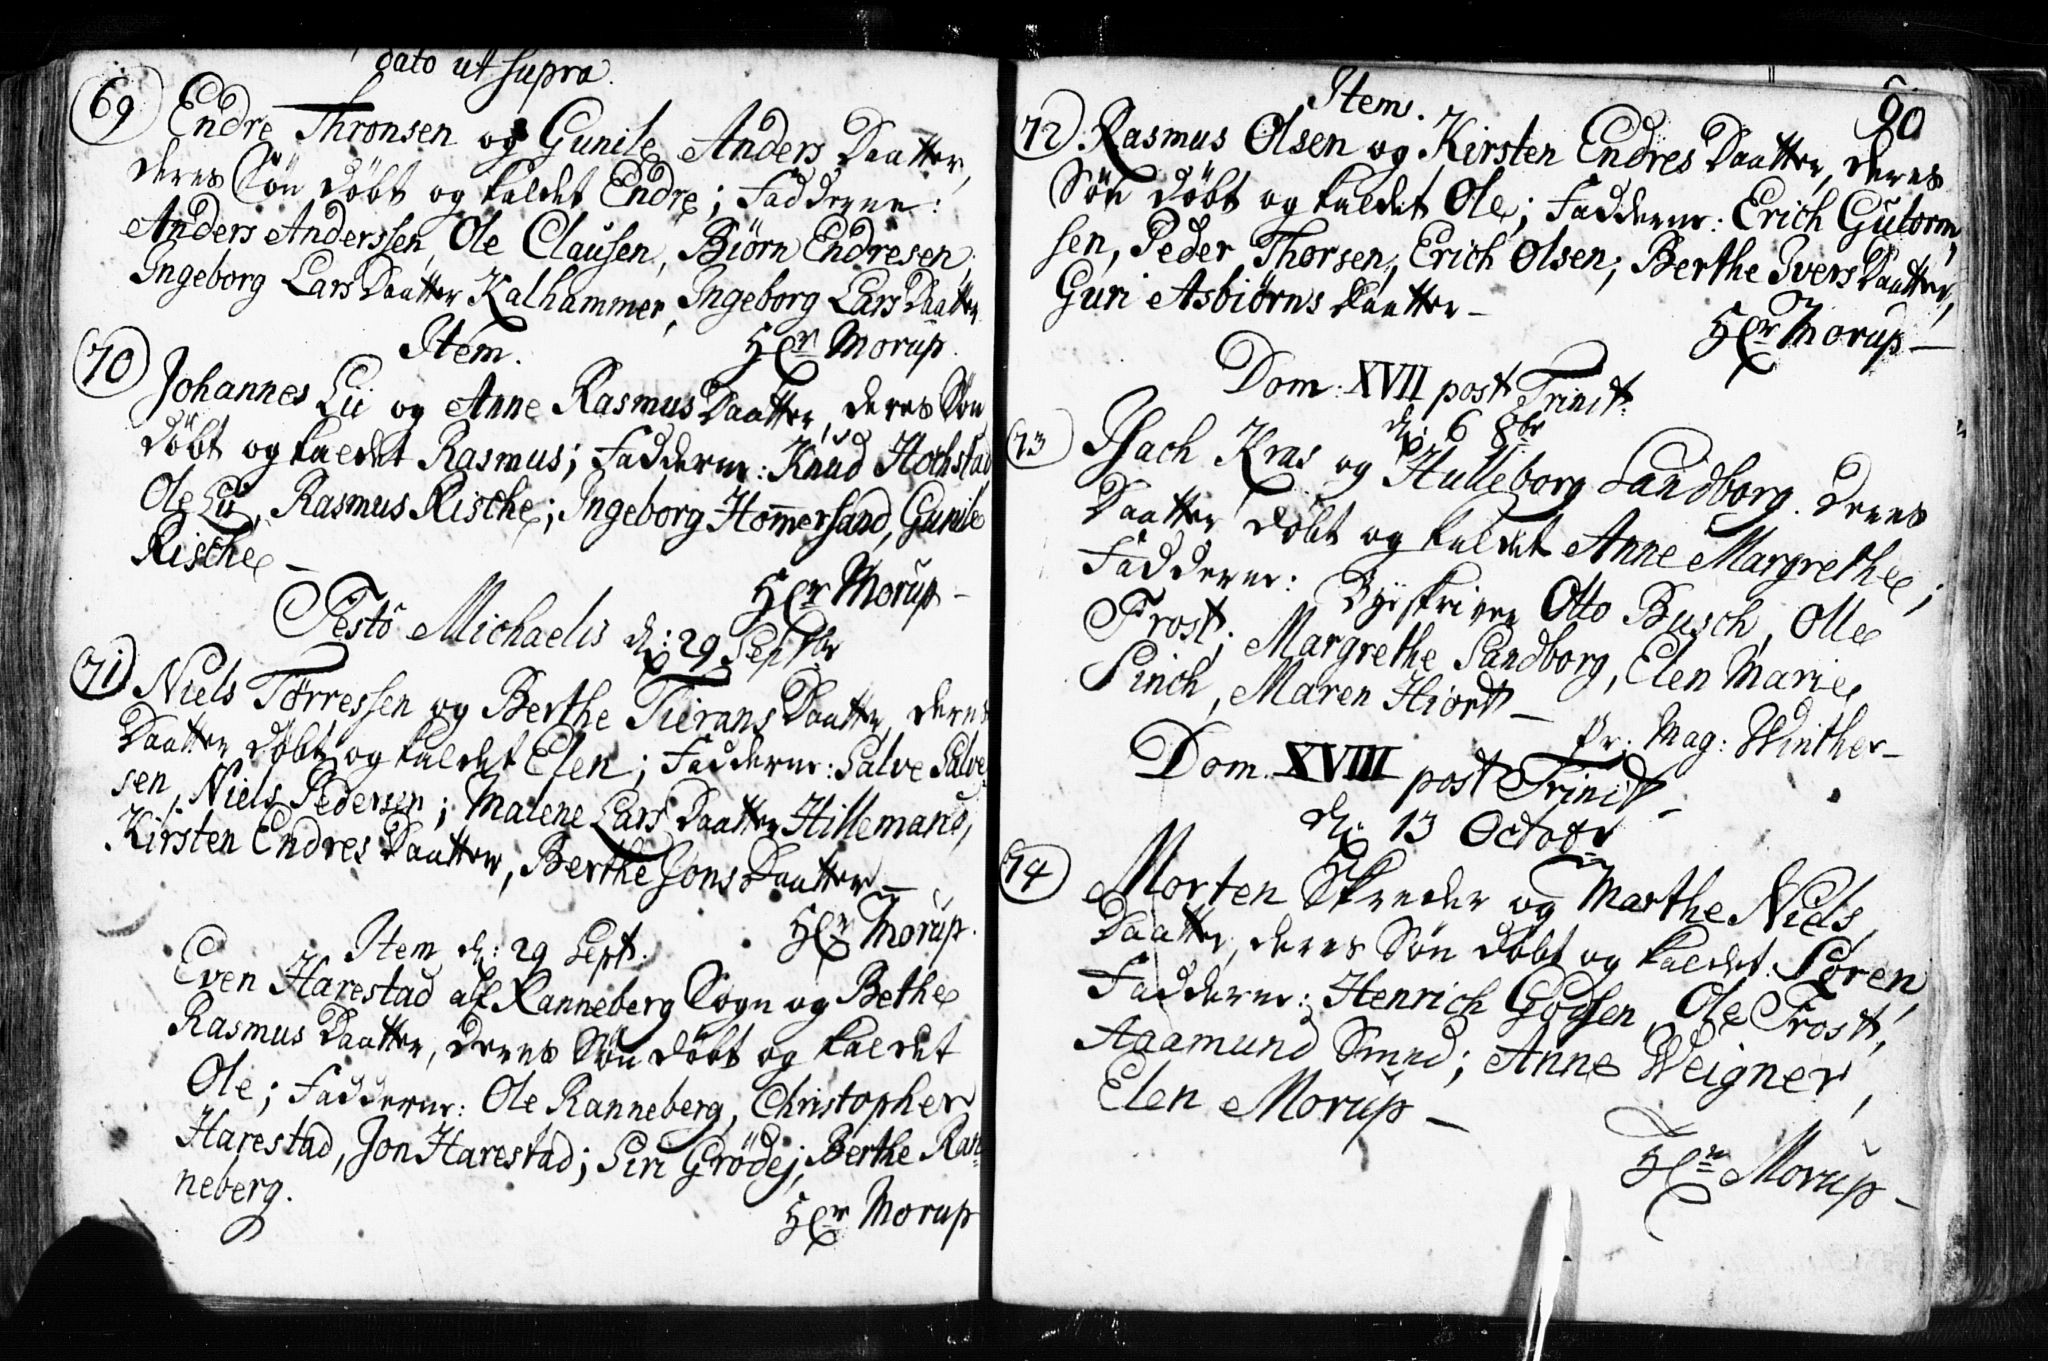 dato ut supra.
69 Endre Thronsen og Gunile Anders Daatter,
deres Søn døbt og kaldet Endre; Fadderne:
Anders Anderssen, Ole Clausen, Biørn Endresen,
Ingeborg Lars Daatter Kalhammer, Ingeborg Lars Daatter
Hr Morup.
Item.
70 Johannes Lii og Anne Rasmus Daatter, deres Søn
døbt og kaldet Rasmus; Fadderne: Knud Hochstad
Ole Lii, Rasmus Rische; Ingeborg Hom̅ersand, Gunile
Rische –
Hr Morup –
Festo Michaelis d: 29 Septbr
71 Niels Tørressen og Berthe Tierans Daatter, deres
Daatter døbt og kaldet Elen; Fadderne: Salve Salve
sen, Niels Pedersen; Malene Lars Daatter Hillemans,
Kirsten Endres Daatter, Berthe Jons Daatter –
Hr Morup.
Item d: 29 Sept.
Even Harestad af Ranneberg Sogn og Bethe
Rasmus Daatter, deres Søn døbt og kaldet
Ole; Fadderne: Ole Ranneberg, Christopher
Harestad, Jon Harestad; Siri Grødej, Berthe Ran
neberg.
Hr Morup
90
Item.
72. Rasmus Olsen og Kirsten Endres Daatter, deres
Søn døbt og kaldet Ole; Fadderne: Erich Gutorm
sen, Peder Thorsen, Erich Olsen; Berthe Ivers Daatter,
Guri Asbiørns Daatter –
Hr Morup –
Dom: XVII post Trinit:
d: 6 8br
73 Isach Kras og Hulleborg Sandborg. deres
Daatter døbt og kaldet Anne Margrethe;
Fadderne: Byeskriver Otto Busch, Olle
Frost; Margrethe Sandborg, Elen Marie
Pinch, Maren Hiort –
Pr: Mag: Winther –
Dom. XVIII post Trinit –
d: 13 Octobr
74 Morten Skreder og Marthe Niels
Daatter, deres Søn døbt og kaldet Søren,
Fadderne: Henrich Godsen, Ole Frost,
Aaamund Smed; Anne Weigner,
Elen Morup –
Hr Morup –